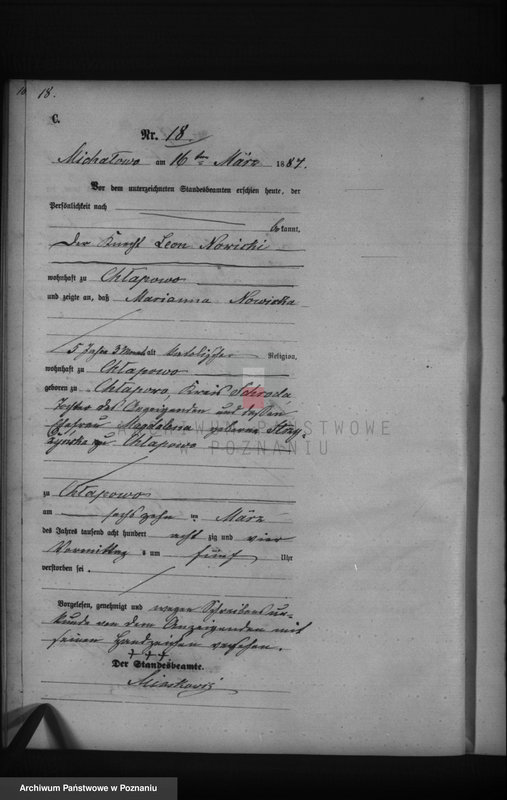 18.
C.
Nr. 18
Michałowo am 16ten März 1887.
Vor dem unterzeichneten Standesbeamten erschien heute, der
Persönlichkeit nach
bekannt,
der Knecht Leon Nowicki
wohnhaft zu Chłapowo
und zeigte an, daß Marianna Nowicka
5 Jahre 3 Monat alt katolischer Religion,
wohnhaft zu Chłapowo
geboren zu Chłapowo, Kreis Schroda
Tochter des Anzeigenden und dessen
Ehefrau Magdalena geborene
zu Chłapowo
zu Chłapowo
am sechszehn ten März
des Jahres tausend acht hundert acht zig und
Vormittag s um fünf Uhr
verstorben sei.
Vorgelesen, genehmigt und wegen Schreibensun-
kunde von dem Anzeigenden mit
seinen Handzeichen versehen.
+ + +
Der Standesbeamte.
ARCHIWUM PAŃSTWOWE
W POZNANIU
Archiwum Państwowe w Poznaniu